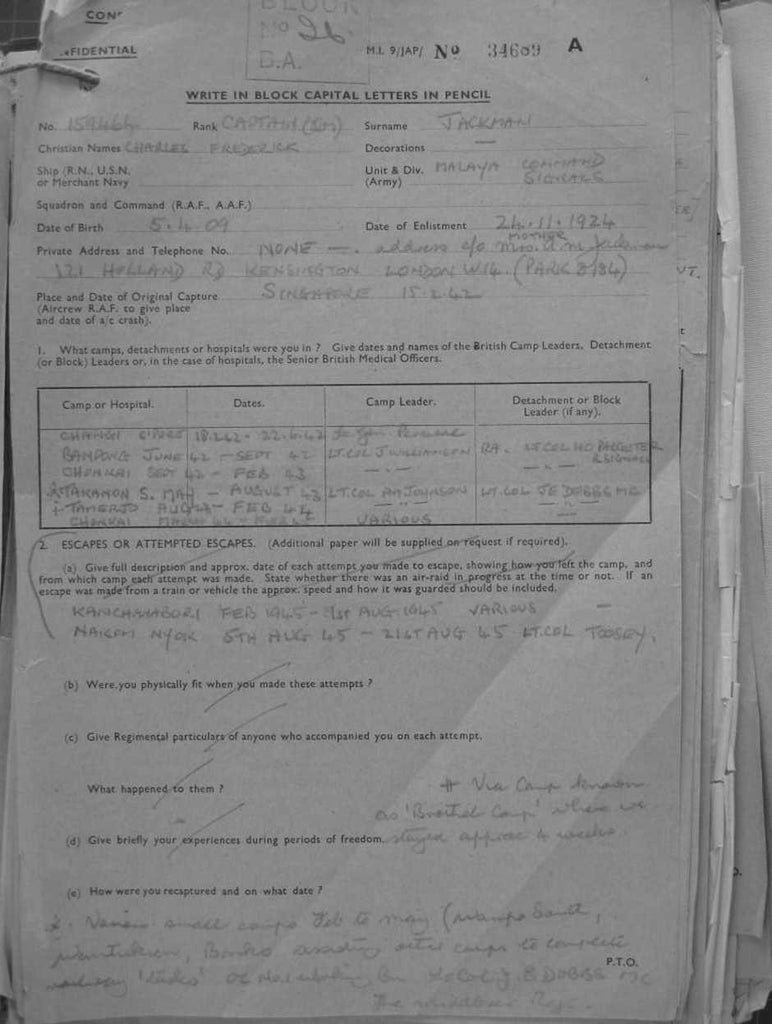 CONFIDENTIAL
BLOCK
No 26
B.A.
M.I. 9/JAP/ No 34609 A
WRITE IN BLOCK CAPITAL LETTERS IN PENCIL
No. 159464 Rank CAPTAIN Surname JACKMAN
Christian Names CHARLES FREDERICK Decorations —
Ship (R.N., U.S.N. or Merchant Navy Unit & Div. (Army) MALAYA COMMAND SIGNALS
Squadron and Command (R.A.F., A.A.F.)
Date of Birth 5.4.09 Date of Enlistment 24.11.1924
MOTHER
Private Address and Telephone No. NONE —. address c/o Mrs. Jackman
121 HOLLAND RD KENSINGTON LONDON W14. (PARK 8184)
Place and Date of Original Capture SINGAPORE 15.2.42
(Aircrew R.A.F. to give place
and date of a/c crash).
1. What camps, detachments or hospitals were you in ? Give dates and names of the British Camp Leaders, Detachment
(or Block) Leaders or, in the case of hospitals, the Senior British Medical Officers.
Camp or Hospital. Dates. Camp Leader. Detachment or Block Leader (if any).
CHANGI S'PORE 18.2.42 - 22.6.42
BANPONG JUNE 42 - SEPT 42 LT.COL J WILLIAMSON RA. LT COL HC PARGITER R SIGNALS
CHONKAI SEPT 42 - FEB 43 — " — — " —
TAKANON S. MAY - AUGUST 43 LT.COL JOHNSON LT. COL JE DOBBS MC
+ TAMERJO AUG 43 - FEB 44 — " — — " —
CHONKAI VARIOUS
2. ESCAPES OR ATTEMPTED ESCAPES. (Additional paper will be supplied on request if required).
(a) Give full description and approx. date of each attempt you made to escape, showing how you left the camp, and
from which camp each attempt was made. State whether there was an air-raid in progress at the time or not. If an
escape was made from a train or vehicle the approx. speed and how it was guarded should be included.
KANCHANABURI FEB 1945 - AUG 1945 VARIOUS —
NAKOM NYOK 5TH AUG 45 - 21ST AUG 45 LT.COL TOOSEY.
(b) Were you physically fit when you made these attempts ?
(c) Give Regimental particulars of anyone who accompanied you on each attempt.
What happened to them ?
+ Via Camp known
as 'Brothel Camp' where we
(d) Give briefly your experiences during periods of freedom. stayed approx 4 weeks.
(e) How were you recaptured and on what date ?
Various small camps Feb to May (Wampo South,
assisting other camps to complete
railway J. E DOBBS MC
P.T.O.